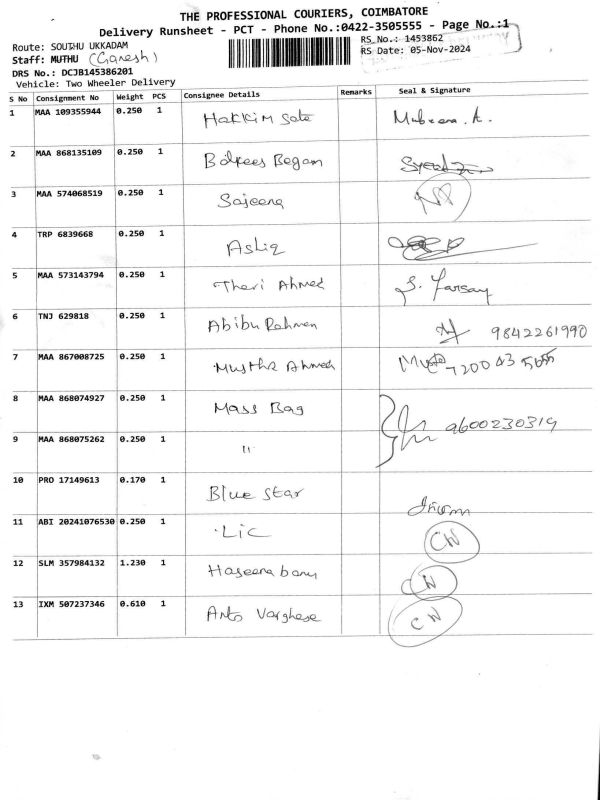 THE PROFESSIONAL COURIERS, COIMBATORE
Delivery Runsheet - PCT - Phone No.:0422-3505555 - Page No.:1
Route: SOUTHU UKKADAM
RS No.: 1453862
Staff: MUTHU (Ganesh)
RS Date: 05-Nov-2024
DRS No.: DCJB145386201
Vehicle: Two Wheeler Delivery
S No Consignment No Weight PCS Consignee Details Remarks Seal & Signature
1 MAA 109355944 0.250 1 Hakkim Sate Mubeena. A.
2 MAA 868135109 0.250 1 Begam
3 MAA 574068519 0.250 1 Sajeena
4 TRP 6839668 0.250 1 Ashiq
5 MAA 573143794 0.250 1 Theri Ahmed S. Farsay
6 TNJ 629818 0.250 1 Abibu Rahman 9842261990
7 MAA 867008725 0.250 1 Mustha Ahmed
8 MAA 868074927 0.250 1 Mass Bag 9600230319
9 MAA 868075262 0.250 1 "
10 PRO 17149613 0.170 1 Blue Star
11 ABI 20241076530 0.250 1 LiC CN
12 SLM 357984132 1.230 1 Haseena banu CN
13 IXM 507237346 0.610 1 Anto Varghese CN